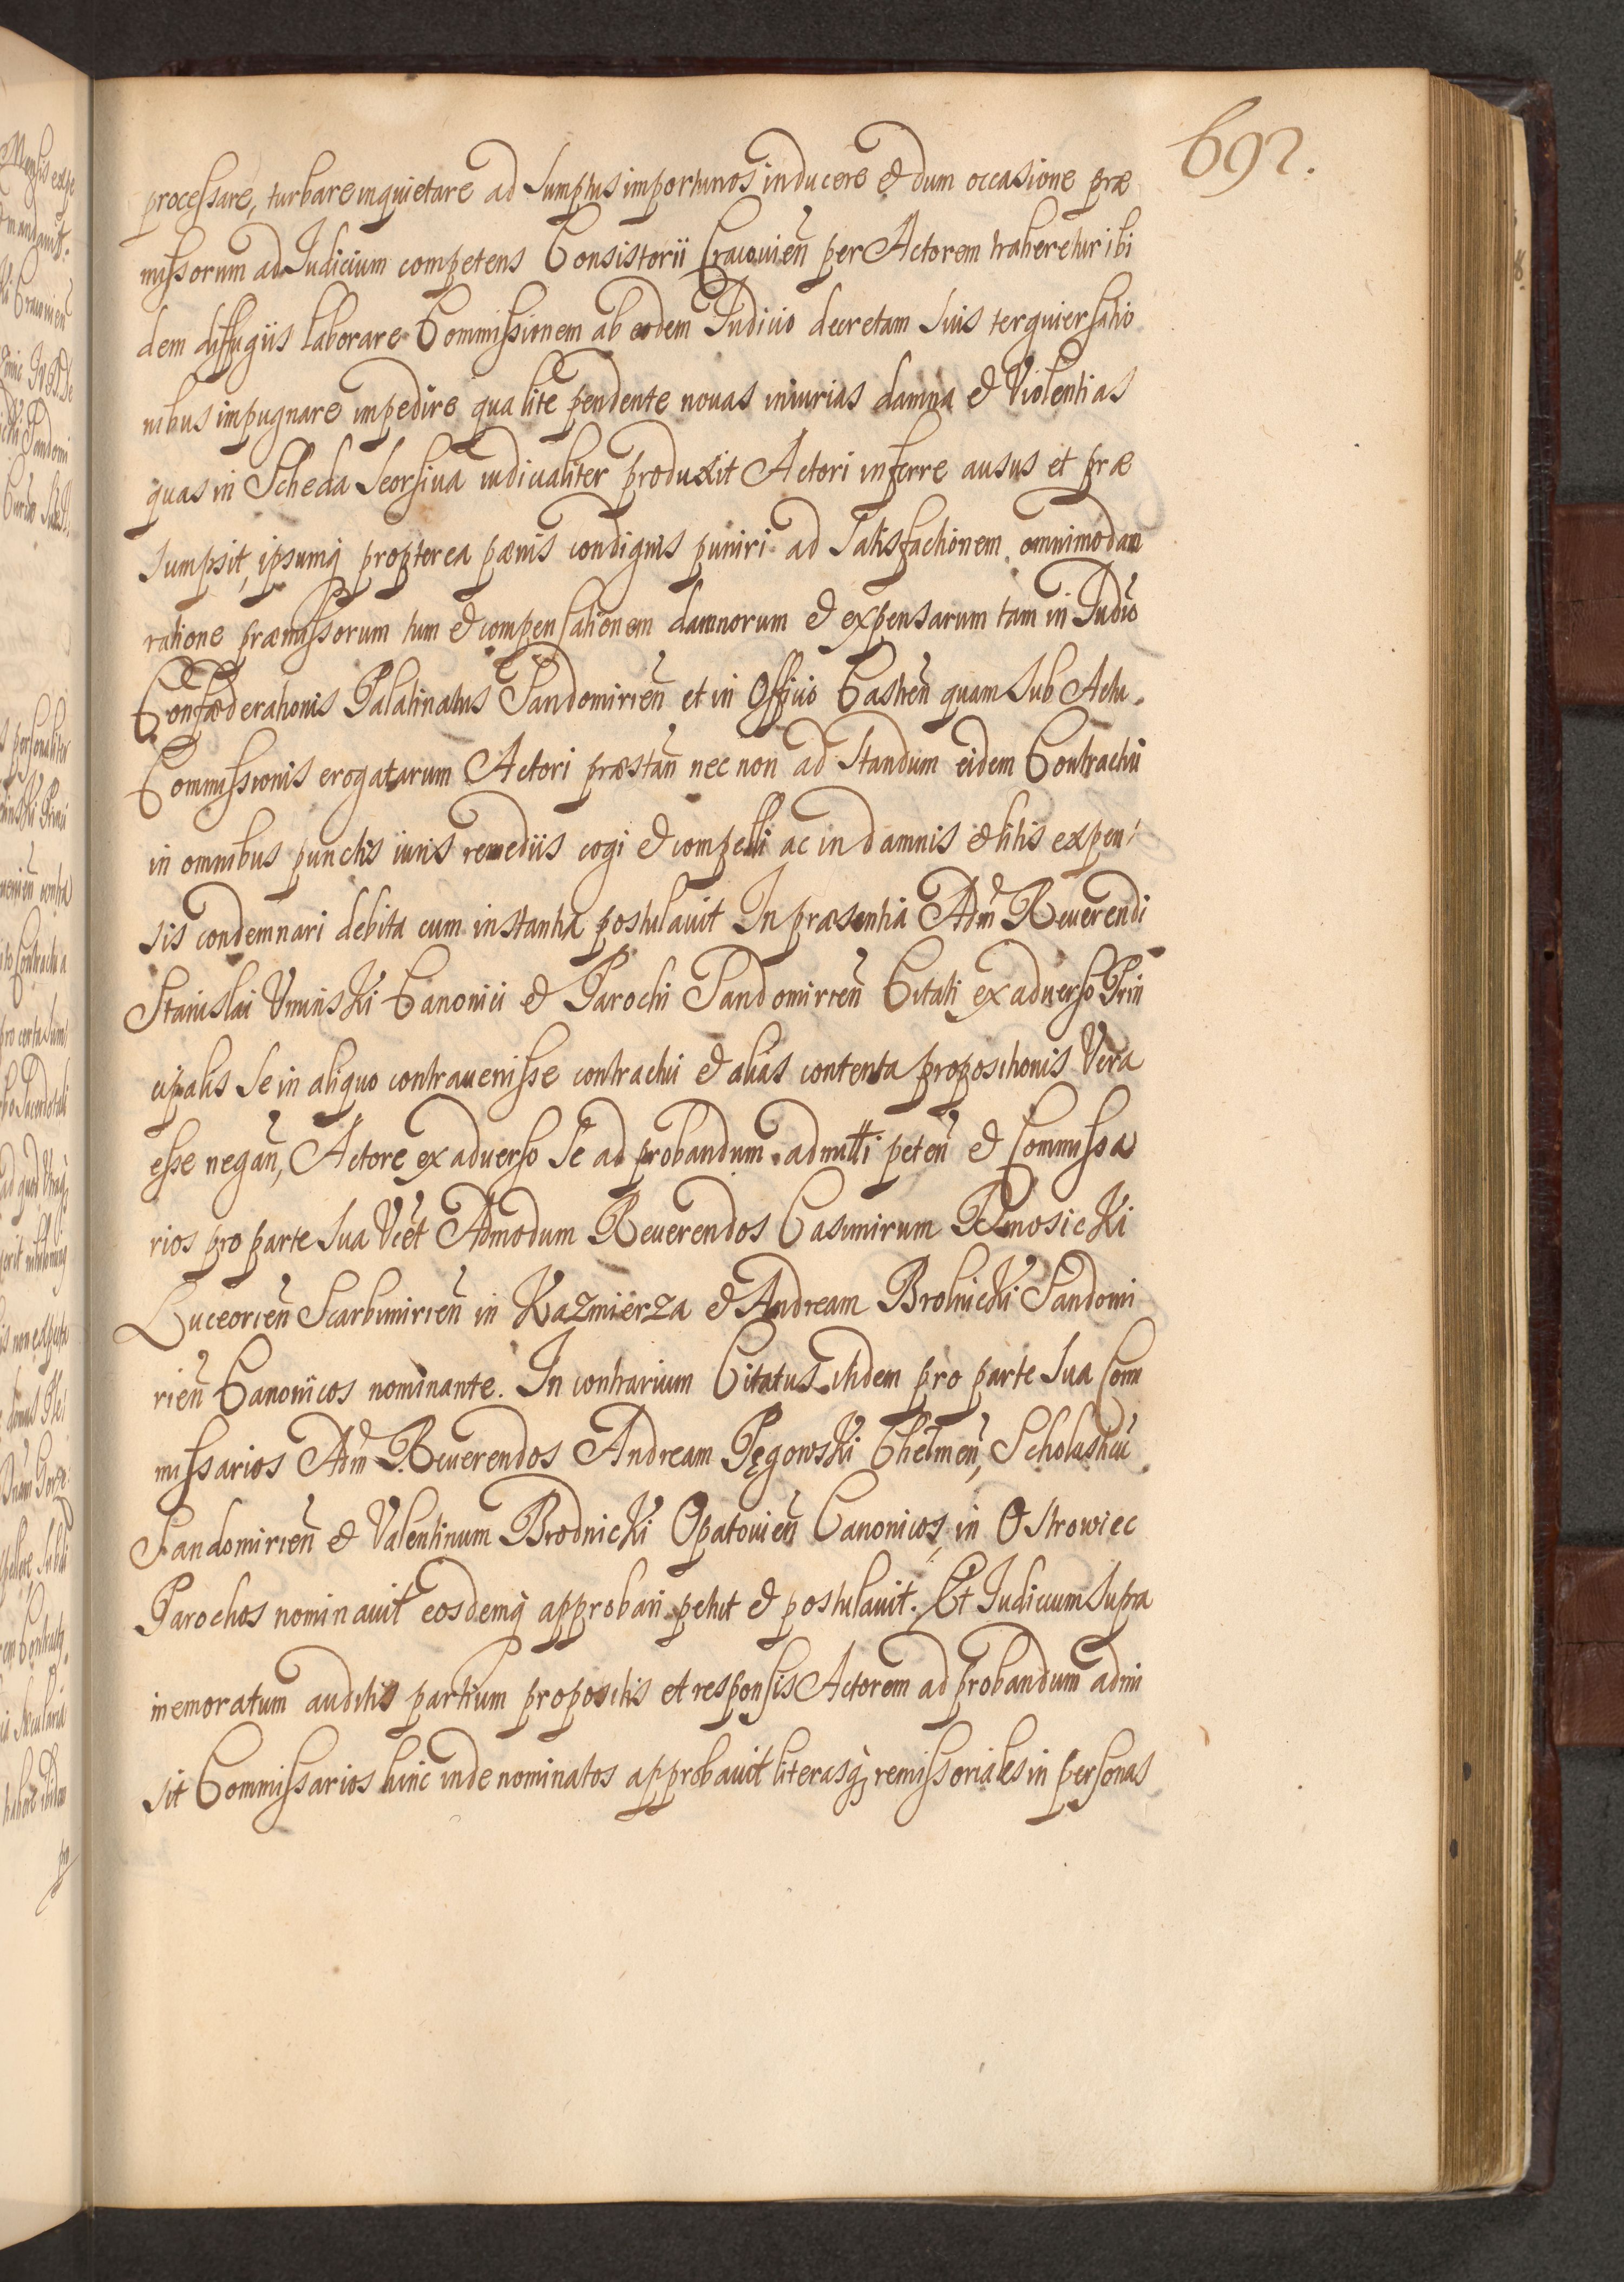 692.
processare, turbare inquietare ad sumptus importunos inducere et dum occasione præ
missorum ad Iudicium competens Consistorii Cracovien̄ per Actorem traheretur ibi
dem diffugiis laborare Commissionem ab eodem Iudicio decretam suis terguiersatio
nibus impugnare impedire qua lite pendente novas iniurias damna et Violentias
quas in Scheda seorsiva iudicialiter produxit Actori inferre ausus et præ
sumpsit, ipsumq̃ propterea pænis condignis puniri ad satisfactionem omnimodam
ratione præmissorum tum et compensationem damnorum et expensarum tam in Iudiō
Confæderationis Palatinatus Sandomirien̄ et in Officio Castren̄ quam sub Actu
Commissionis erogatarum Actori præstan̄ nec non ad standum eidem Contractui
in omnibus punctis iuris remediis cogi et compelli ac in damnis et litis expen
sis condemnari debita cum instantia postulavit In præsentia Adm̄ Reverendi
Stanislai Uminski Canonici et Parochi Sandomirien̄ Citati ex adverso Prin
cipalis se in aliquo contravenisse contractui et alias contenta propositionis Vera
esse negan̄, Actore ex adverso se ad probandum admitti peten̄ et Commissa
rios pro parte sua Vcēt Admodum Reverendos Casimirum
Luceorien̄ Scarbimirien̄ in Kazmierza et Andream Brolnicki Sandomi
rien̄ Canonicos nominante. In contrarium Citatus itidem pro parte sua Com
missarios Adm̄ Reverendos Andream Pęgowski Chelmen̄, Scholasticū
Sandomirien̄ et Valentinum Brodnicki Opatovien̄ Canonicos, in Ostrowiec
Parochos nominavit eosdemq̃ approbari petiit et postulavit. Et Iudicium supra
memoratum auditis partium propositis et responsis Actorem ad probandum admi
sit Commissarios hinc inde nominatos approbavit literasq̃ remissoriales in personas